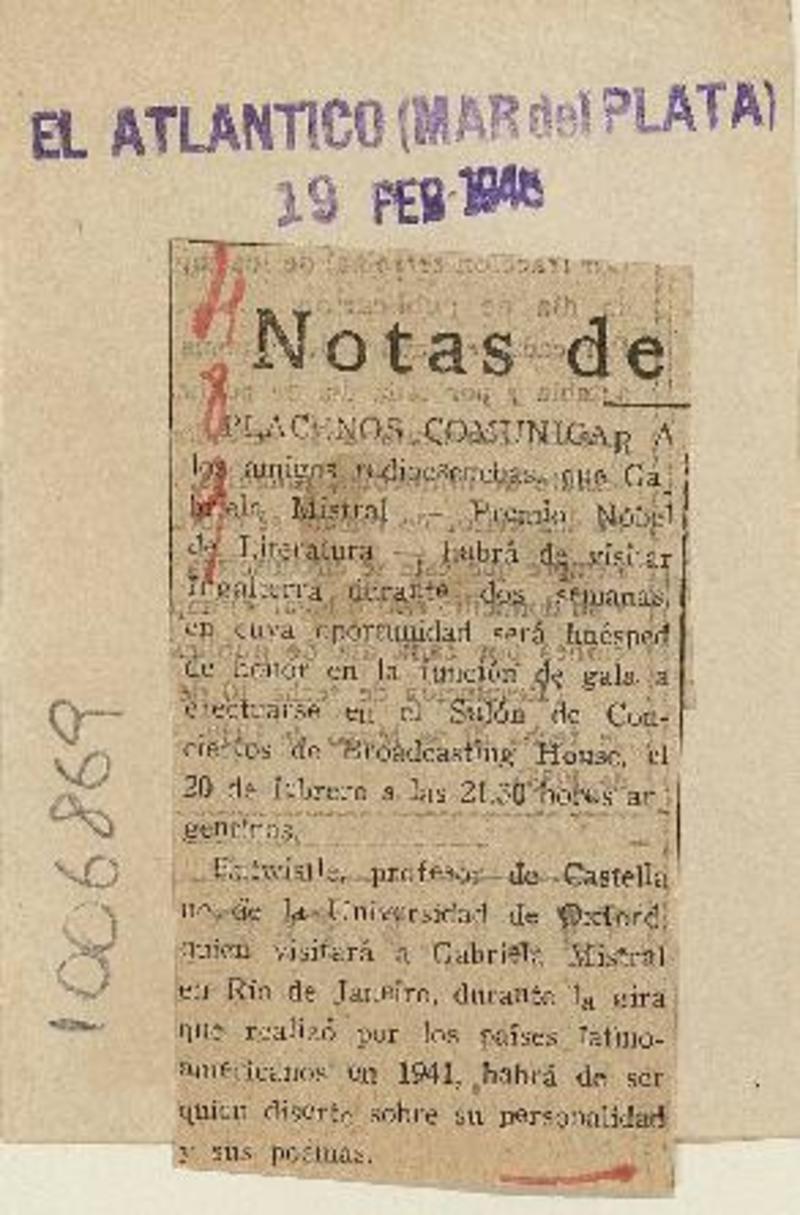 EL ATLANTICO (MAR del PLATA)
19 FEB 1946
Notas de
PLACENOS COMUNICAR A
los amigos radioescuchas, que Ga
briela Mistral — Premio Nóbel
de Literatura — habrá de visitar
Ingalterra durante dos semanas,
en cuya oportunidad será huésped
de honor en la función de gala a
efectuarse en el Salón de Con-
ciertos de Broadcasting House, el
20 de febrero a las 21.30 horas ar
gentinas.
Entwistle, profesor de Castella
no, de la Universidad de Oxford,
quien visitará a Gabriela Mistral
en Río de Janeiro, durante la gira
que realizó por los países latino-
americanos en 1941, habrá de ser
quien diserte sobre su personalidad
y sus poemas.
1006869